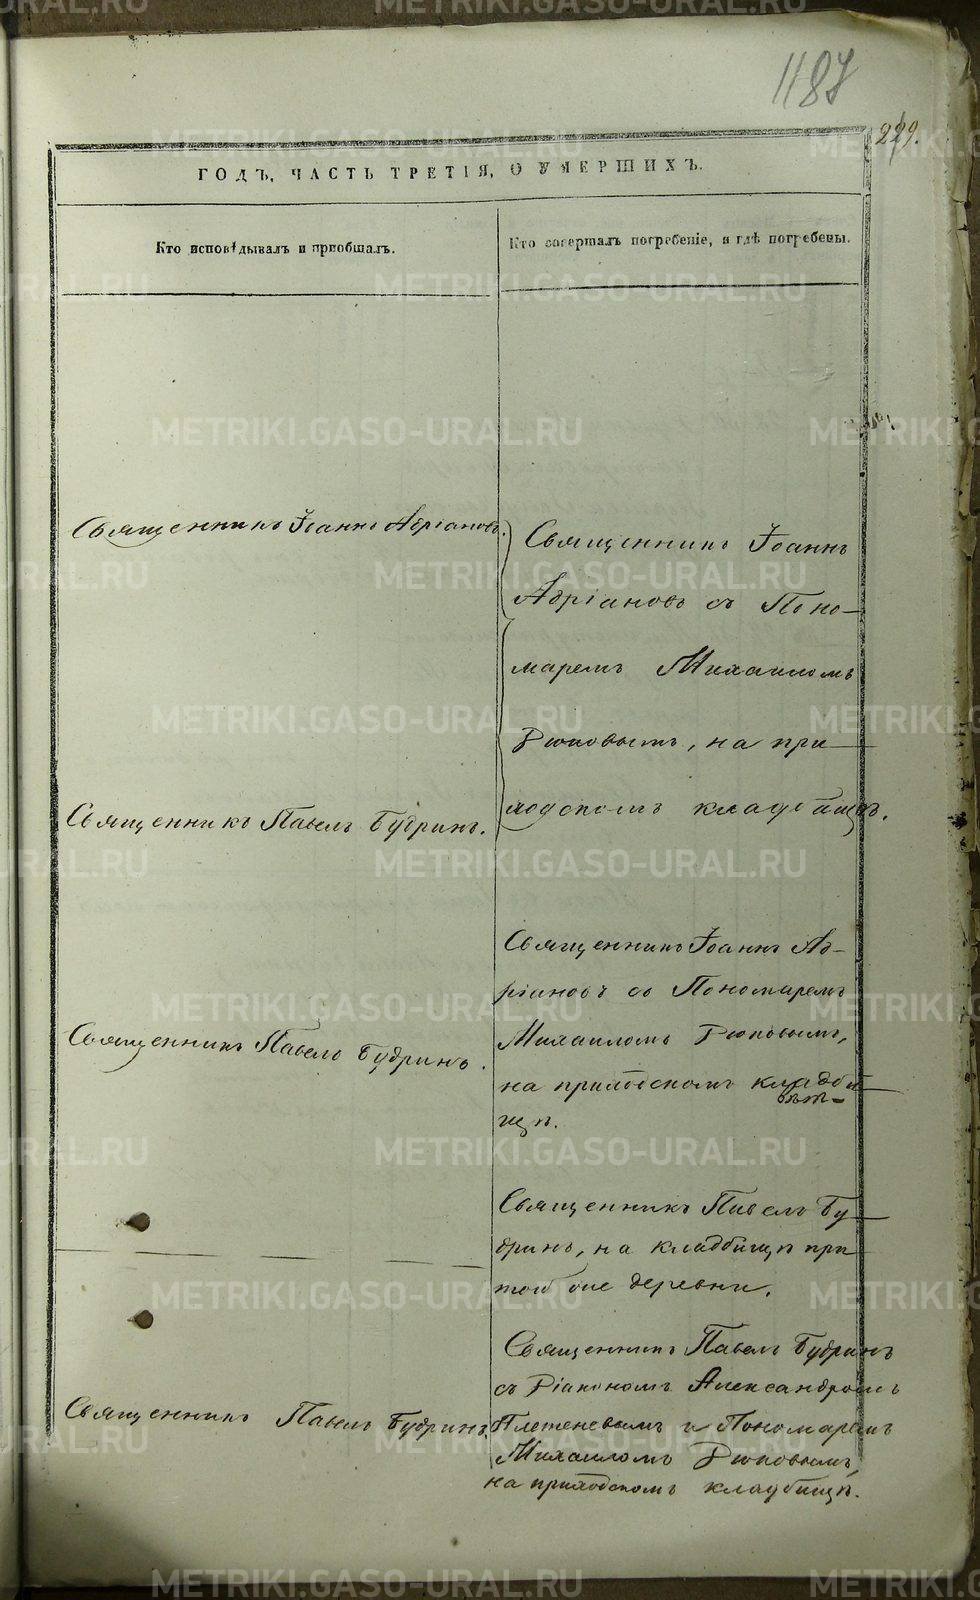 1187
229.
ГОДЪ, ЧАСТЬ ТРЕТІЯ, О УМЕРШИХЪ.
Кто исповѣдывалъ и пріобщалъ.
Кто совершалъ погребеніе, и гдѣ погребены.
Священникъ Іоаннъ Адріановъ.
Священникъ Іоаннъ
Адріановъ съ Поно-
маремъ Михаиломъ
на при-
ходскомъ кладбищѣ.
Священникъ Павелъ Будринъ.
Священникъ Іоаннъ Ад-
ріановъ съ Пономаремъ
Михаиломъ
на приходскомъ кладби-
щѣ.
Священникъ Павелъ Будринъ.
Священникъ Павелъ Бу-
дринъ, на кладбищѣ при
той же деревни.
Священникъ Павелъ Будринъ
съ Діакономъ Александромъ
Плетеневымъ и Пономаремъ
Михаиломъ
на приходскомъ кладбищѣ.
Священникъ Павелъ Будринъ.
METRIKI.GASO-URAL.RU